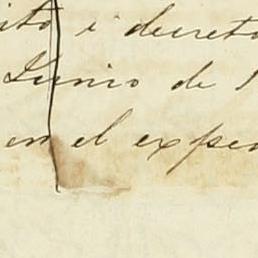 ito i decreto
Junio de 1
en el expe